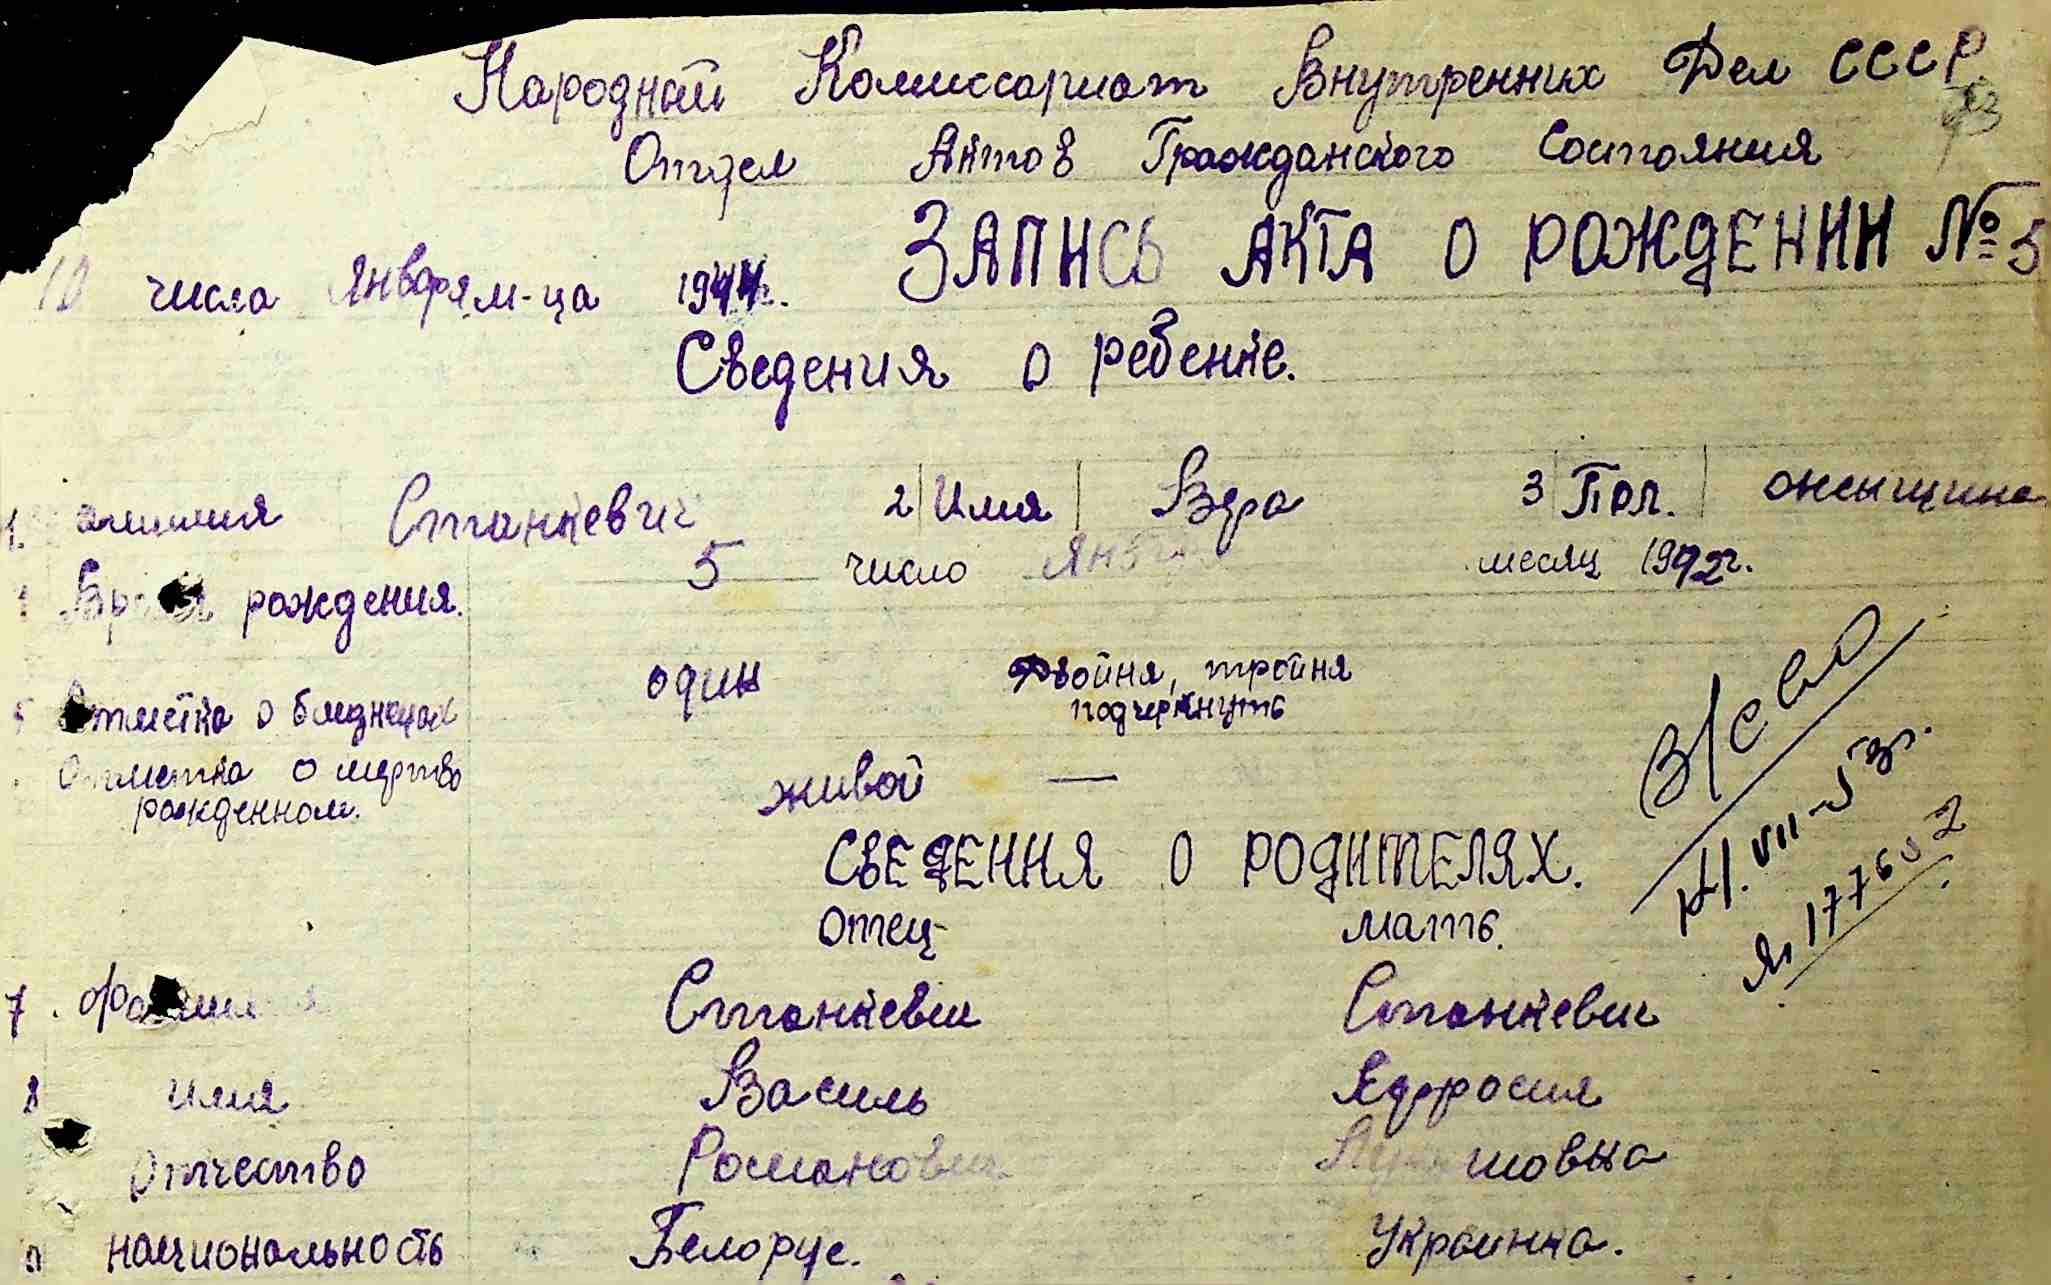 Народный Комиссариат Внутренних Дел СССР.
Отдел Актов Гражданского Состояния
ЗАПИСЬ АКТА О РОЖДЕНИИ № 5
10 числа Января м-ца 1944г.
Сведения о ребенке.
1. амилия Станкевич 2 Имя Вера 3 Пол. женщина
Время рождения. 5 число Янв месяц 1942г.
5 Отметка о близнецах один Двойня, тройня
подчеркнуть
Отметка о мертво
рожденном. живой —
В/село
VII-53г.
177652
СВЕДЕНИЯ О РОДИТЕЛЯХ.
Отец мать.
7. Фамилия Станкевич Станкевич
8 имя Василь Ефросия
Отчество Романович
национальность Белорус. Украинка.